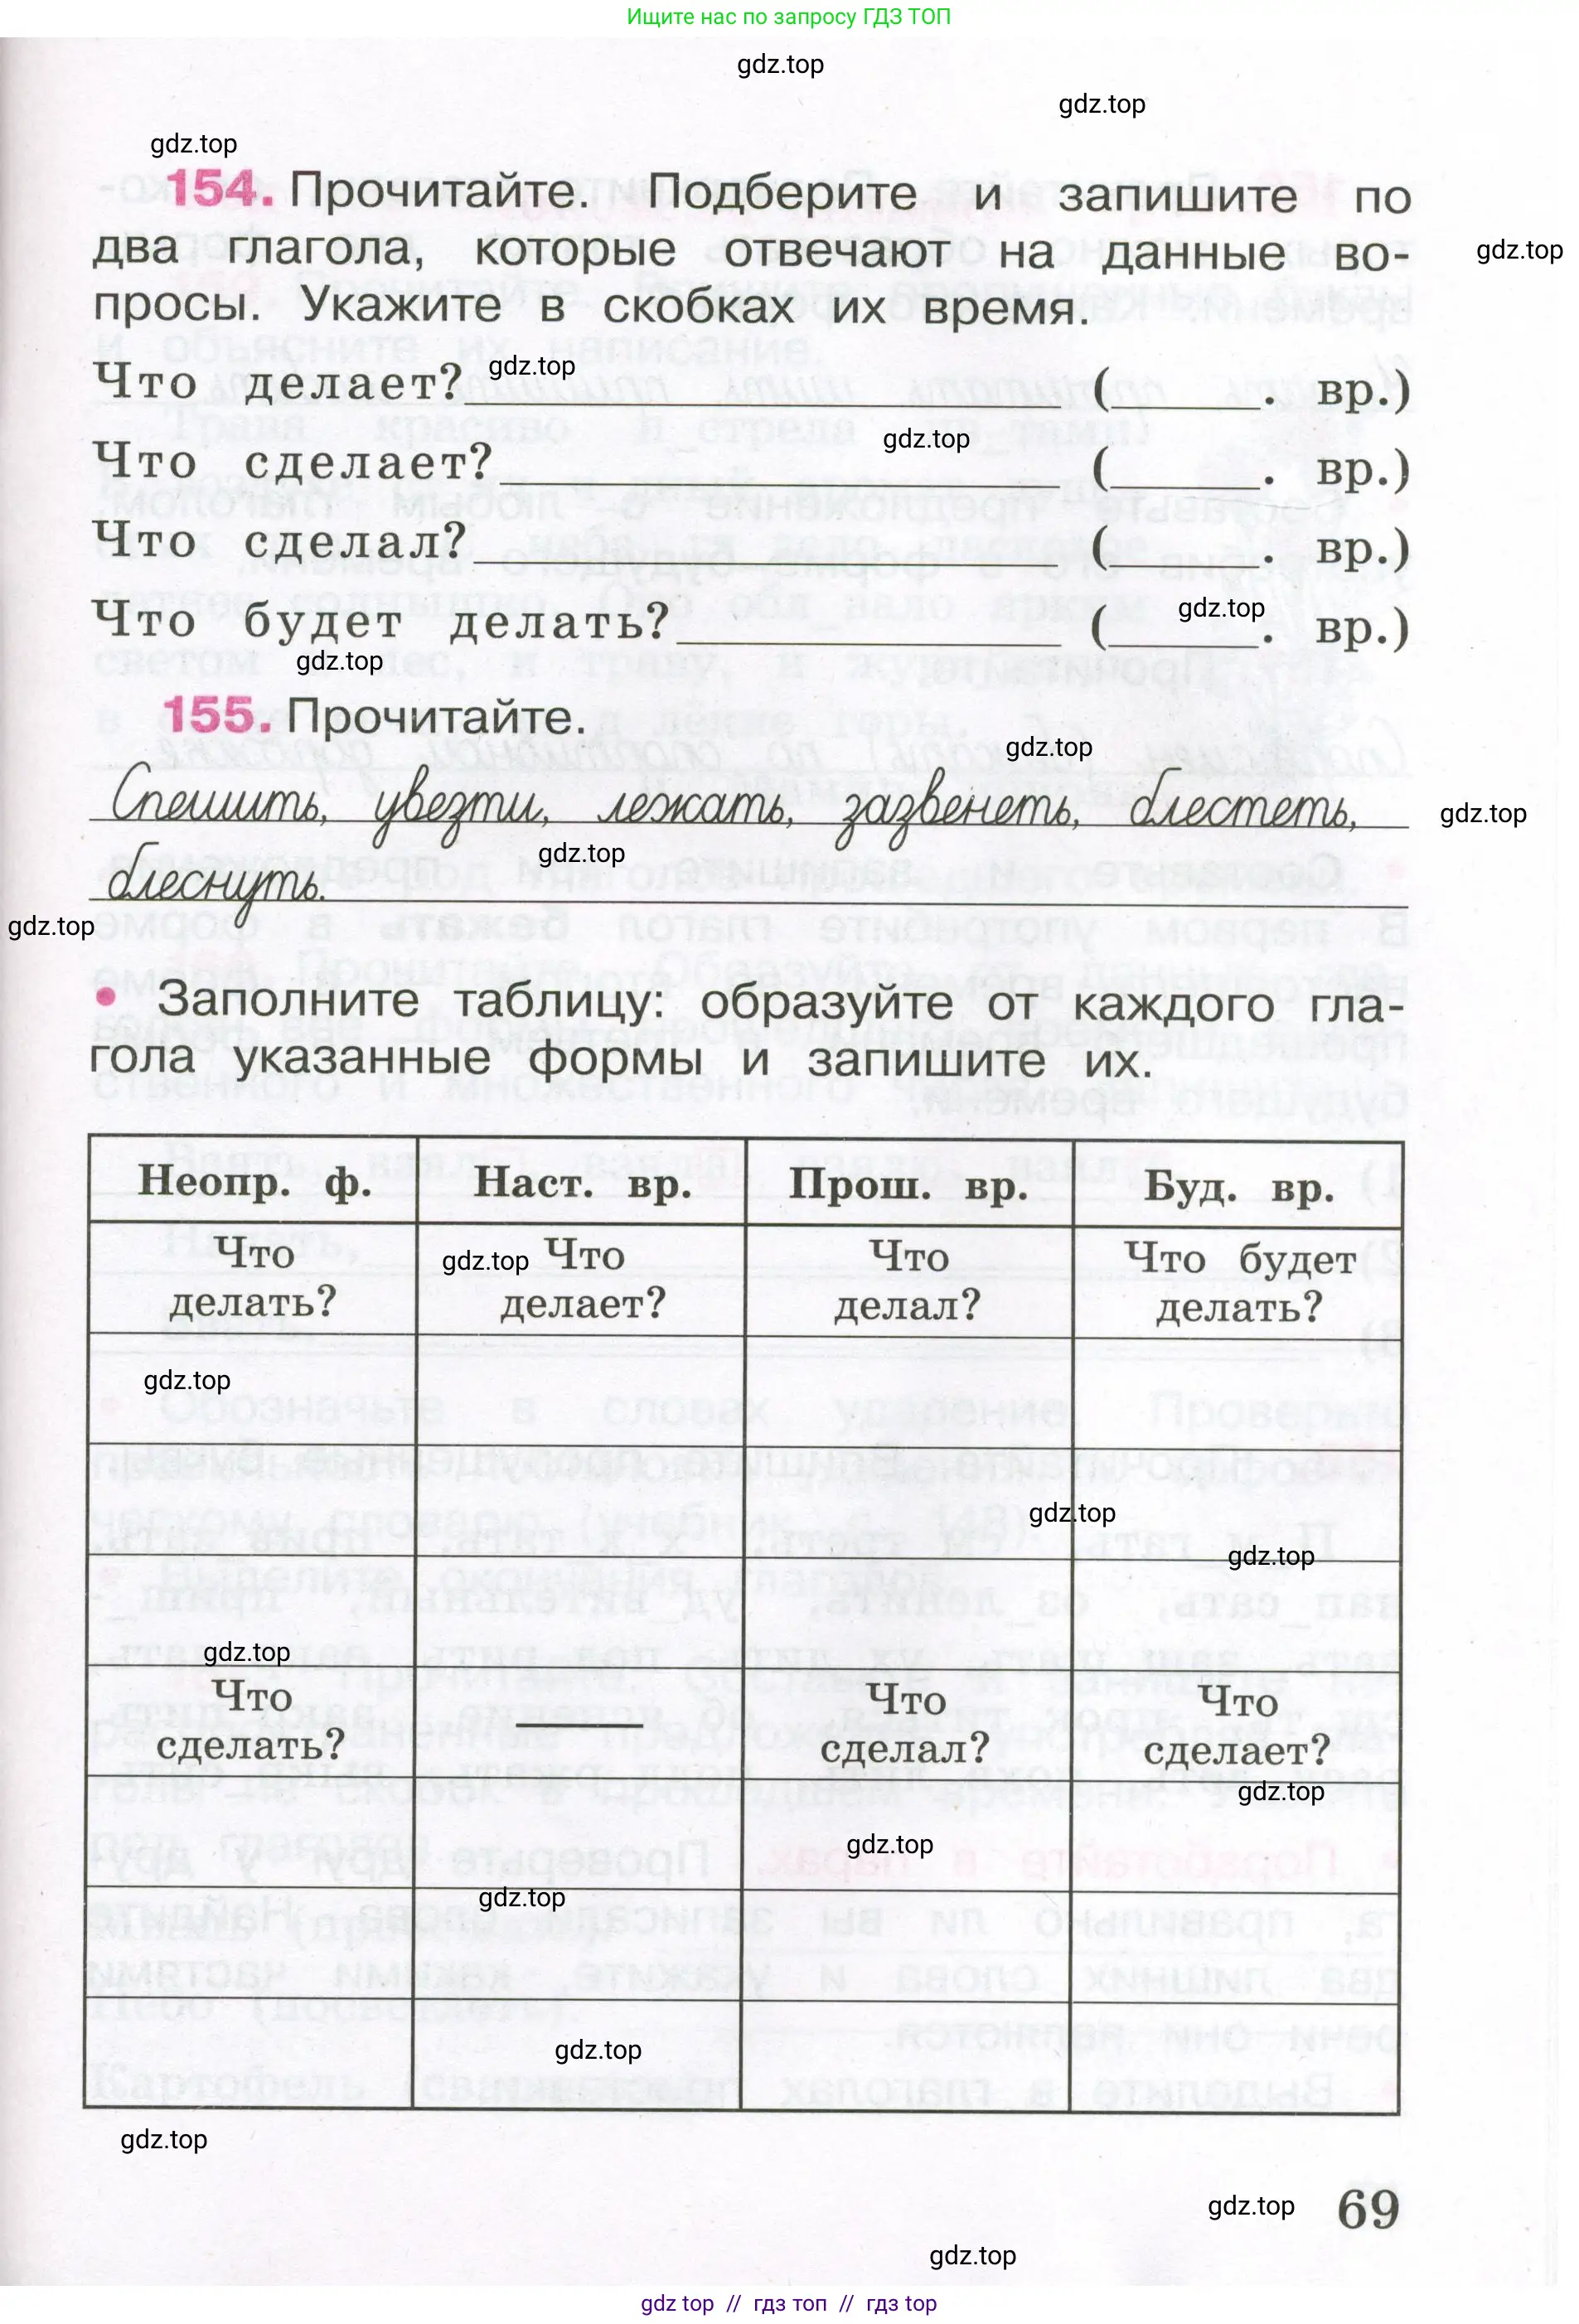 Ищите нас по запросу ГДЗ ТОП
gdz.top
gdz.top
gdz.top
154. Прочитайте. Подберите и запишите по
два глагола, которые отвечают на данные во-
gdz.top
просы. Укажите в скобках их время.
Что делает? gdz.top ______ (______. вр.)
Что сделает? ______ gdz.top (______. вр.)
Что сделал? ______ (______. вр.)
Что будет делать? ______ (______. вр.)
gdz.top
gdz.top
155. Прочитайте.
gdz.top
Спешить, увезти, лежать, зазвенеть, блестеть,
gdz.top
gdz.top
блеснуть.
gdz.top
• Заполните таблицу: образуйте от каждого гла-
гола указанные формы и запишите их.
Неопр. ф. Наст. вр. Прош. вр. Буд. вр.
Что делать? gdz.top Что делает? Что делал? Что будет делать?
gdz.top
gdz.top
gdz.top
gdz.top
Что сделать? —— Что сделал? Что сделает?
gdz.top
gdz.top
gdz.top
gdz.top
gdz.top
gdz.top 69
gdz.top
gdz top // гдз топ // гдз top